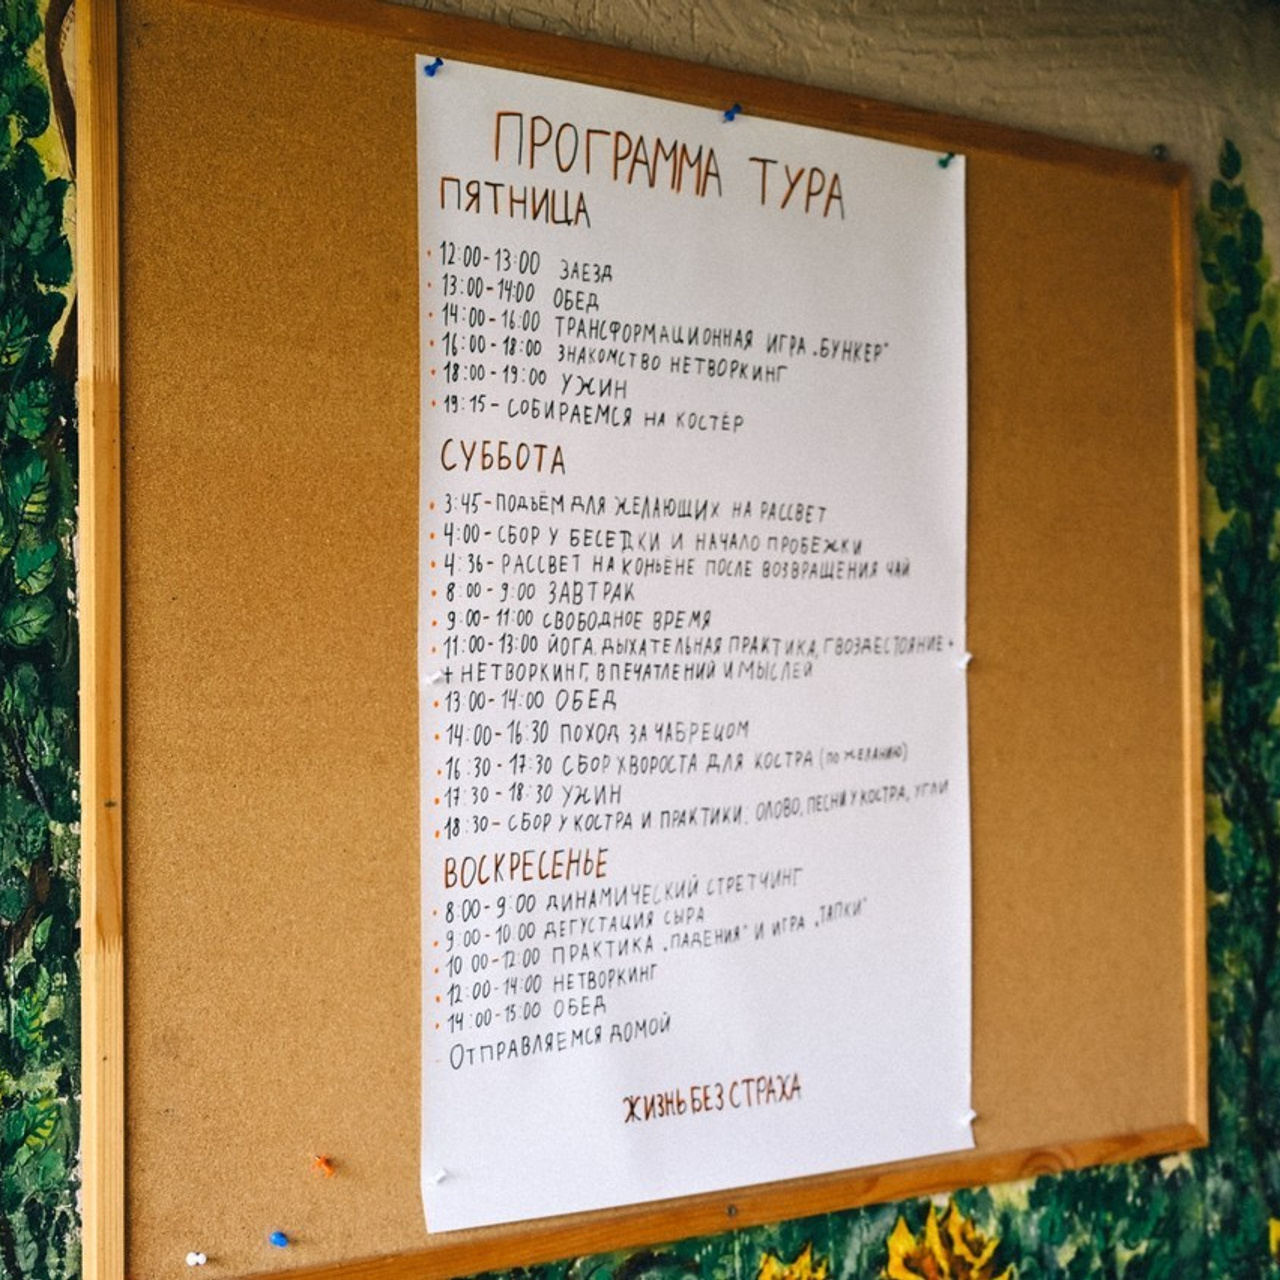 ПРОГРАММА ТУРА
ПЯТНИЦА
• 12:00-13:00 ЗАЕЗД
• 13:00-14:00 ОБЕД
• 14:00-16:00 ТРАНСФОРМАЦИОННАЯ ИГРА „БУНКЕР"
• 16:00-18:00 ЗНАКОМСТВО НЕТВОРКИНГ
• 18:00-19:00 УЖИН
• 19:15- СОБИРАЕМСЯ НА КОСТЁР
СУББОТА
• 3:45-ПОДЪЁМ ДЛЯ ЖЕЛАЮЩИХ НА РАССВЕТ
• 4:00-СБОР У БЕСЕДКИ И НАЧАЛО ПРОБЕЖКИ
• 4:36- РАССВЕТ НА КОНЬЕНЕ ПОСЛЕ ВОЗВРАЩЕНИЯ ЧАЙ
• 8:00-9:00 ЗАВТРАК
• 9:00-11:00 СВОБОДНОЕ ВРЕМЯ
• 11:00-13:00 ЙОГА. ДЫХАТЕЛЬНАЯ ПРАКТИКА, ГВОЗДЕСТОЯНИЕ +
+ НЕТВОРКИНГ, ВПЕЧАТЛЕНИЙ И МЫСЛЕЙ
• 13:00-14:00 ОБЕД
• 14:00-16:30 ПОХОД ЗА ЧАБРЕЦОМ
• 16:30-17:30 СБОР ХВОРОСТА ДЛЯ КОСТРА (ПО ЖЕЛАНИЮ)
• 17:30-18:30 УЖИН
• 18:30- СБОР У КОСТРА И ПРАКТИКИ: ОЛОВО, ПЕСНИ У КОСТРА, УГЛИ
ВОСКРЕСЕНЬЕ
• 8:00-9:00 ДИНАМИЧЕСКИЙ СТРЕТЧИНГ
• 9:00-10:00 ДЕГУСТАЦИЯ СЫРА
• 10:00-12:00 ПРАКТИКА „ПАДЕНИЯ" И ИГРА „ТАПКИ"
• 12:00-14:00 НЕТВОРКИНГ
• 14:00-15:00 ОБЕД
- ОТПРАВЛЯЕМСЯ ДОМОЙ
ЖИЗНЬ БЕЗ СТРАХА